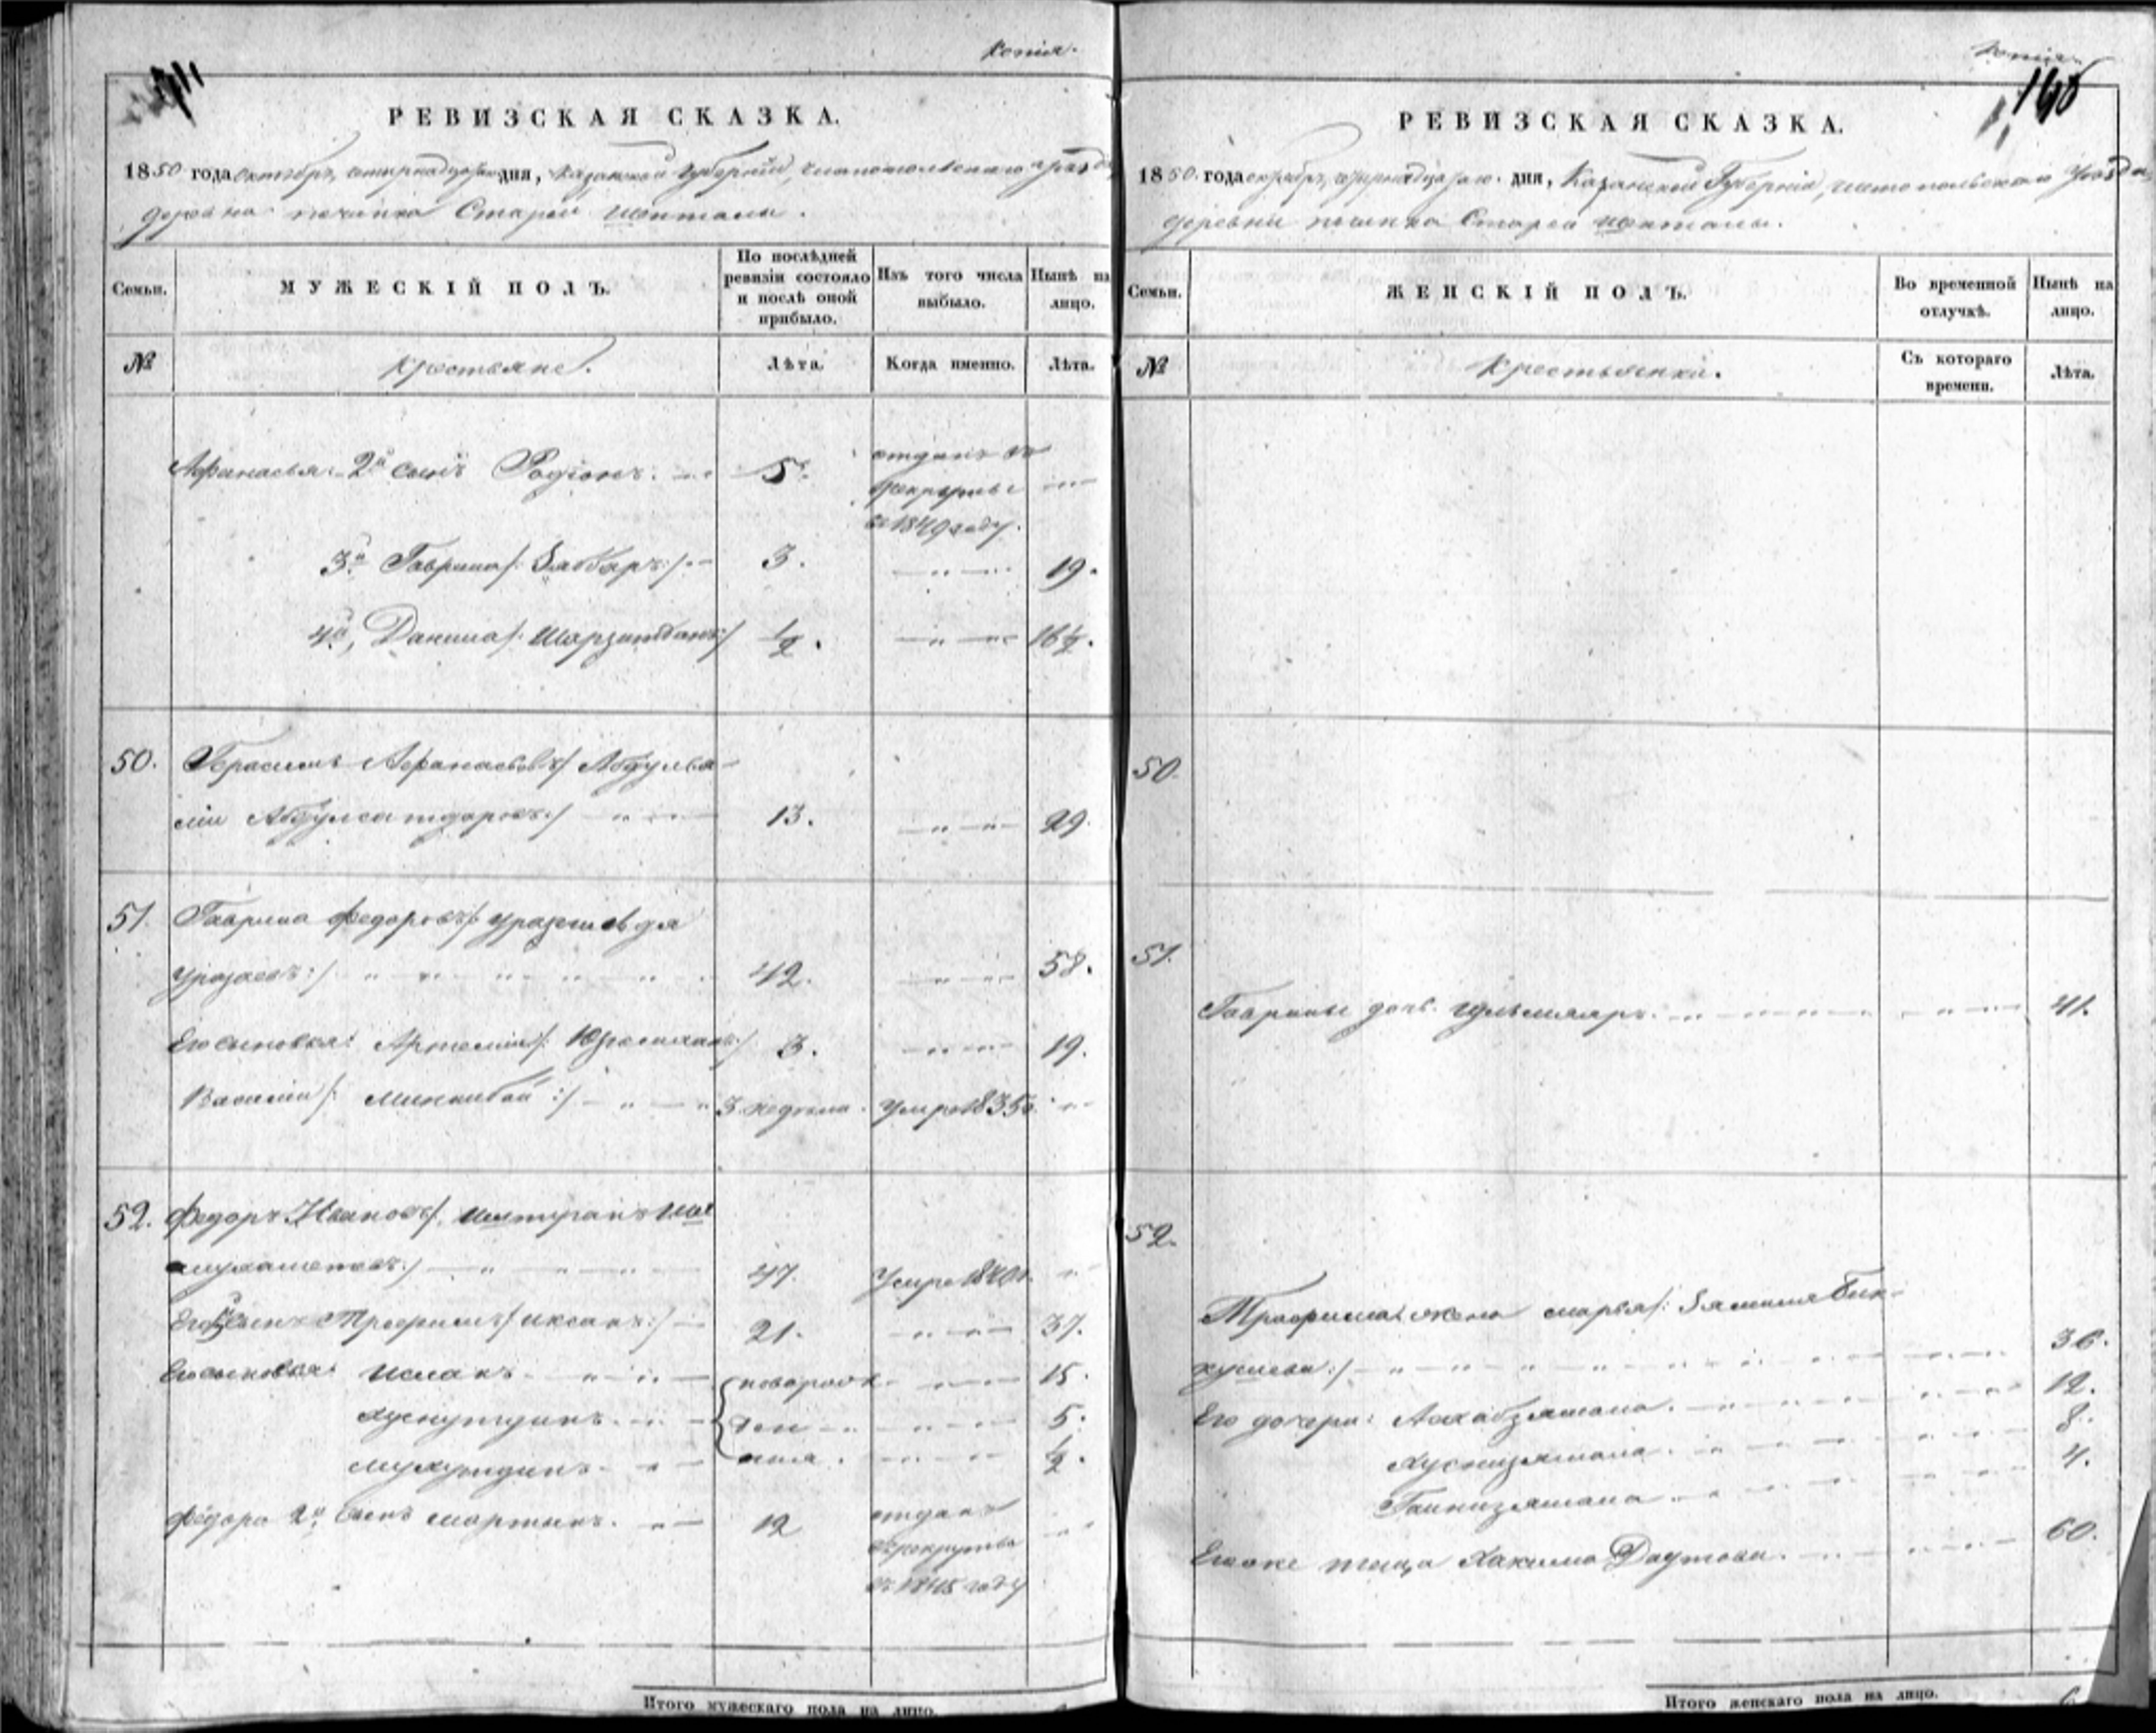 Копія.
РЕВИЗСКАЯ СКАЗКА.
1850 года октября, четырнадцатаго дня, Казанской Губерніи, чистопольскаго уезда
деревни починка Старой шентали.
Семьи.
МУЖЕСКІЙ ПОЛЪ.
По послѣдней ревизіи состояло и послѣ оной прибыло.
Изъ того числа выбыло.
Нынѣ на лицо.
№
Крестьяне.
Лѣта.
Когда именно.
Лѣта.
Афанасья 2й сынъ Родіонъ. 5. отданъ въ рекруты въ 1849 году.
3й Гаврила /: Зяббаръ :/ 3. 19.
4й, Данила /: :/ 1/2. 16 1/2.
50. Герасимъ Афанасьевъ /:
Абдулсатдаровъ :/ 13. 29.
51. Гаврила Федоровъ /:
Уразаевъ :/ 42. 58.
Его сыновья: Артемій /: :/ 3. 19.
Василій /: Миникбай :/ 3 недели. умре 1835г.
52. Федоръ Ивановъ /:
мухаметовъ :/ 47. Умре 1840г.
Его сынъ Трофимъ /: иксанъ :/ 21. 37.
Его сыновья: Исмакъ новорож 15.
Хуснутдинъ. ден 5.
ныя. 1/2.
Федора 2й сынъ мартынъ. 12 отданъ въ рекруты въ 1845 году
Итого мужескаго пола на лицо.
Копія.
РЕВИЗСКАЯ СКАЗКА.
1850. года октября, четырнадцатаго. дня, Казанской Губерніи, чистопольскаго уезда,
деревни починка Старой шенталы.
Семьи.
ЖЕНСКІЙ ПОЛЪ.
Во временной отлучкѣ.
Нынѣ на лицо.
№
Крестьянки.
Съ котораго времени.
Лѣта.
50.
51.
Гаврилы дочь. 41.
52.
Трофима жена марья /: Зямиля Бик-
кулева :/ 36.
Его дочери: 12.
Хуснизямала. 8.
4.
Его же теща Хакима Даутова. 60.
Итого женскаго пола на лицо.